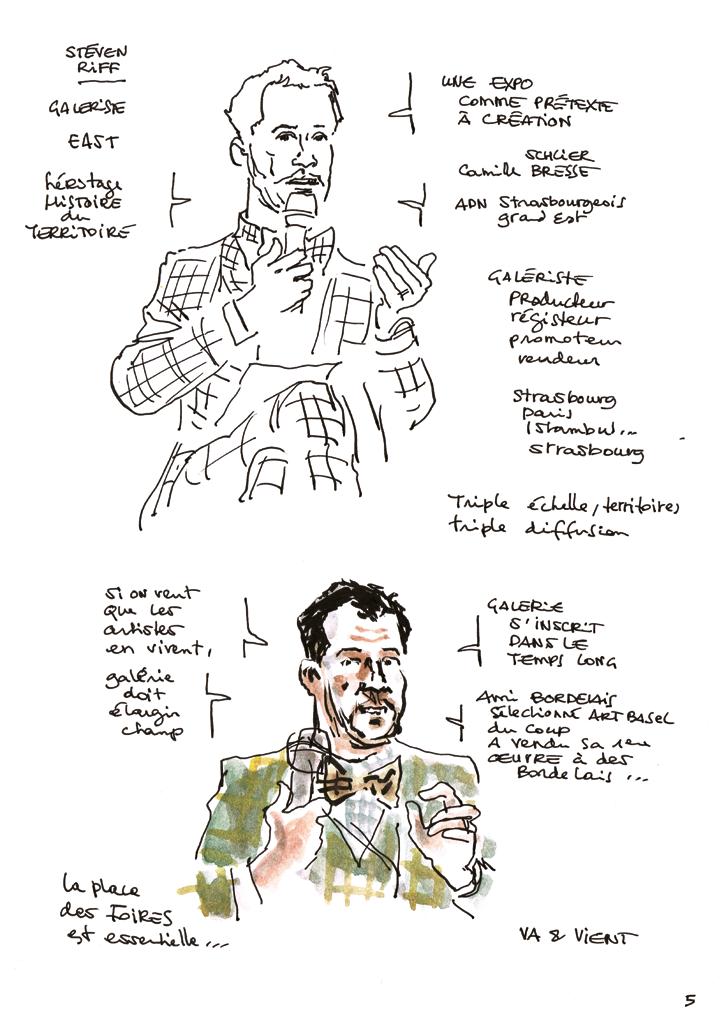 STÉVEN
RiFF
GALERISTE
EAST
héritage
HISTOIRE
du
TERRITOIRE
UNE EXPO
COMME PRÉTEXTE
À CRÉATION
SCHLIER
Camille BRESSE
ADN Strasbourgeois
grand Est
GALÉRISTE
Producteur
régisseur
promoteur
vendeur
Strasbourg
paris
Istambul...
strasbourg
Triple échelle, territoires
triple diffusion
si on veut
que les
artistes
en vivent,
galérie
doit
élargir
champ
GALERIE
S'INSCRIT
DANS LE
TEMPS LONG
Ami BORDELAIS
sélectionné ART BASEL
du coup
A vendu sa 1ère
ŒUVRE à des
Bordelais ...
la place
des FOIRES
est essentielle...
VA & VIENT
5